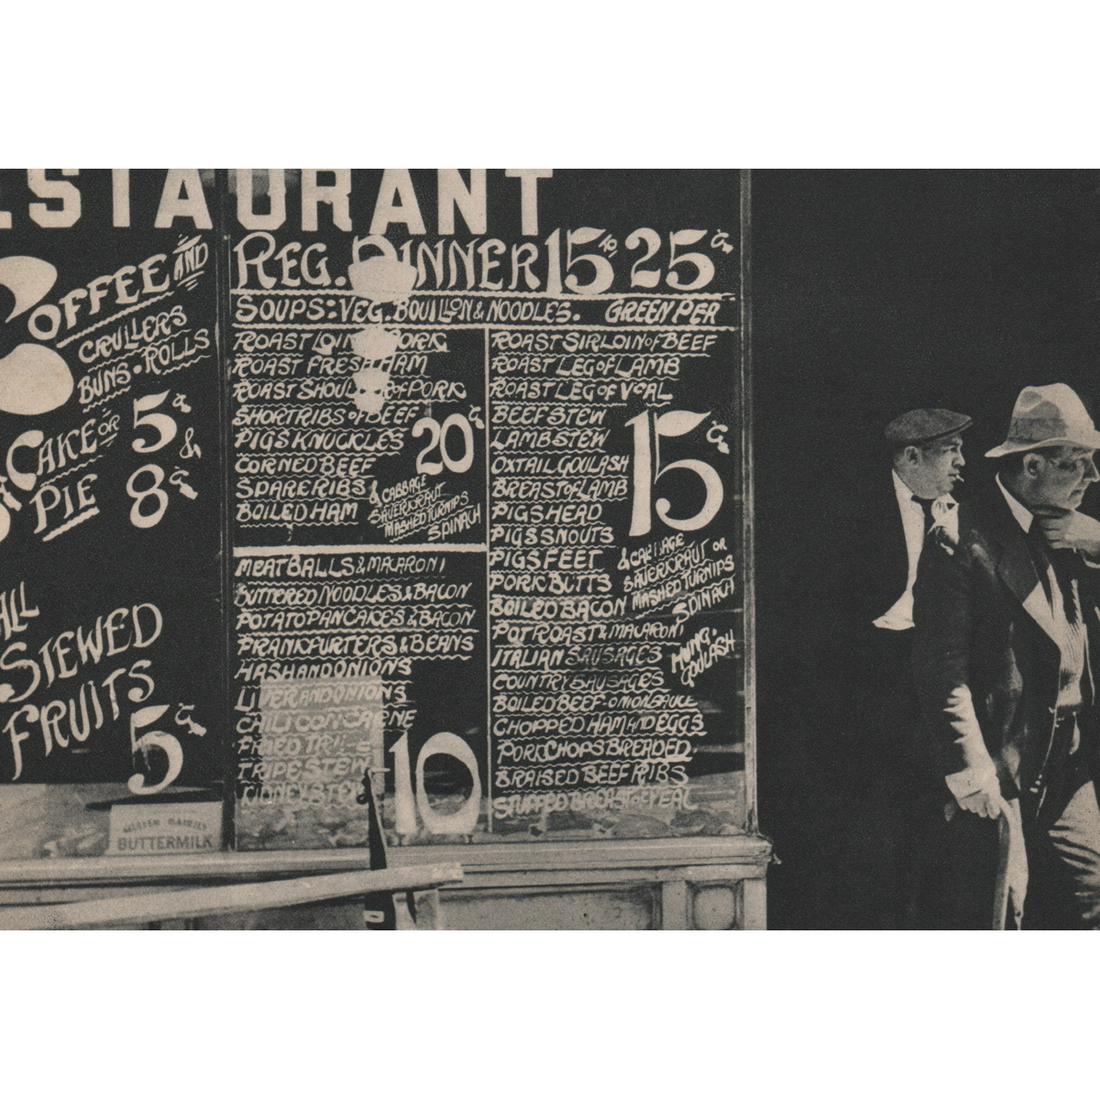 RESTAURANT
COFFEE AND
CRULLERS
BUNS • ROLLS
5¢
CAKE OR
PIE
&
8¢
ALL
STEWED
FRUITS
5¢
BUTTERMILK
REG. DINNER 15 TO 25¢
SOUPS: VEG. BOUILLON & NOODLES. GREEN PER
ROAST LOIN OF PORK
ROAST FRESH HAM
ROAST SHOULDER OF PORK
SHORT RIBS OF BEEF
PIGS KNUCKLES
CORNED BEEF
SPARE RIBS
BOILED HAM
20¢
& CABBAGE
SAUERKRAUT
MASHED TURNIPS
SPINACH
MEAT BALLS & MACARONI
BUTTERED NOODLES & BACON
POTATO PANCAKES & BACON
FRANKFURTERS & BEANS
HASH AND ONIONS
LIVER AND ONIONS
CHILI CON CARNE
FRIED
TRIPE STEW
KIDNEY STEW
10
ROAST SIRLOIN OF BEEF
ROAST LEG OF LAMB
ROAST LEG OF VEAL
BEEF STEW
LAMB STEW
OXTAIL GOULASH
BREAST OF LAMB
PIGS HEAD
PIGS SNOUTS
PIGS FEET
PORK BUTTS
BOILED BACON
15¢
& CABBAGE
SAUERKRAUT OR
MASHED TURNIPS
SPINACH
POT ROAST & MACARONI
ITALIAN SAUSAGES
COUNTRY SAUSAGES
HUNG.
GOULASH
BOILED BEEF - ONION SAUCE
CHOPPED HAM AND EGGS
PORK CHOPS BREADED.
BRAISED BEEF RIBS
STUFFED BREAST OF VEAL